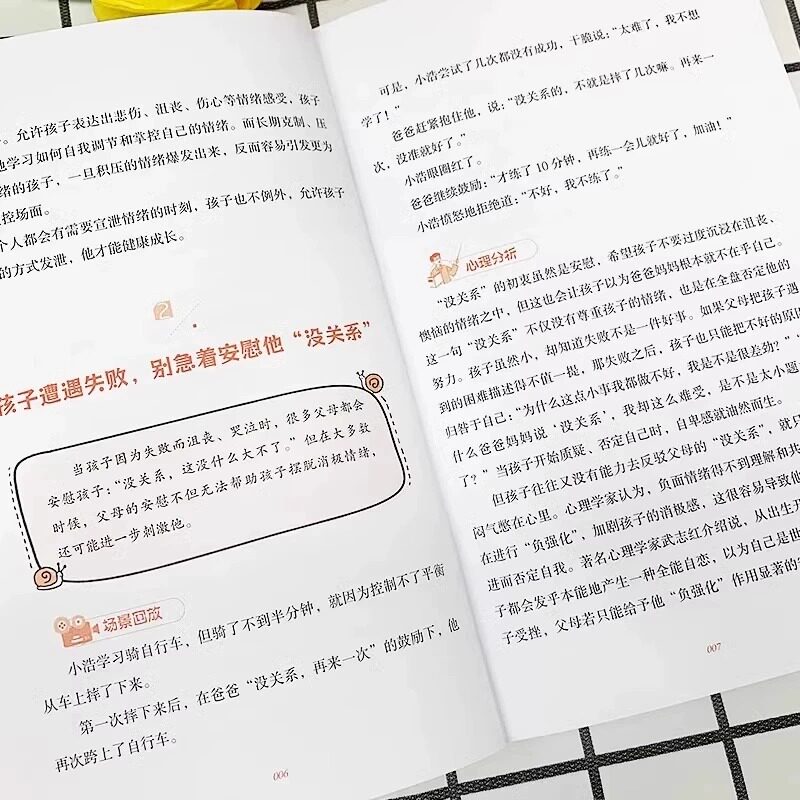 。允许孩子表达出悲伤、沮丧、伤心等情绪感受，孩子
也学习如何自我调节和掌控自己的情绪。而长期克制、压
绪的孩子，一旦积压的情绪爆发出来，反而容易引发更为
控场面。
个人都会有需要宣泄情绪的时刻，孩子也不例外，允许孩子
的方式发泄，他才能健康成长。
2
孩子遭遇失败，别急着安慰他“没关系”
当孩子因为失败而沮丧、哭泣时，很多父母都会
安慰孩子：“没关系，这没什么大不了。”但在大多数
时候，父母的安慰不但无法帮助孩子摆脱消极情绪，
还可能进一步刺激他。
场景回放
小浩学习骑自行车，但骑了不到半分钟，就因为控制不了平衡
从车上摔了下来。
第一次摔下来后，在爸爸“没关系，再来一次”的鼓励下，他
再次跨上了自行车。
006
可是，小浩尝试了几次都没有成功，干脆说：“太难了，我不想
学了！”
爸爸赶紧抱住他，说：“没关系的，不就是摔了几次嘛。再来一
次，没准就好了。”
小浩眼圈红了。
爸爸继续鼓励：“才练了10分钟，再练一会儿就好了，加油！”
小浩愤怒地拒绝道：“不好，我不练了。”
心理分析
“没关系”的初衷虽然是安慰，希望孩子不要过度沉浸在沮丧、
懊恼的情绪之中，但这也会让孩子以为爸爸妈妈根本就不在乎自己。
这一句“没关系”不仅没有尊重孩子的情绪，也是在全盘否定他的
努力。孩子虽然小，却知道失败不是一件好事。如果父母把孩子遇
到的困难描述得不值一提，那失败之后，孩子也只能把不好的原因
归咎于自己：“为什么这点小事我都做不好，我是不是很差劲？”“
什么爸爸妈妈说‘没关系’，我却这么难受，是不是太小题
了？”当孩子开始质疑、否定自己时，自卑感就油然而生。
但孩子往往又没有能力去反驳父母的“没关系”，就只
闷气憋在心里。心理学家认为，负面情绪得不到理解和共
在进行“负强化”，加剧孩子的消极感，这很容易导致他
进而否定自我。著名心理学家武志红介绍说，从出生开
子都会发乎本能地产生一种全能自恋，以为自己是世
子受挫，父母若只能给予他“负强化”作用显著的
007